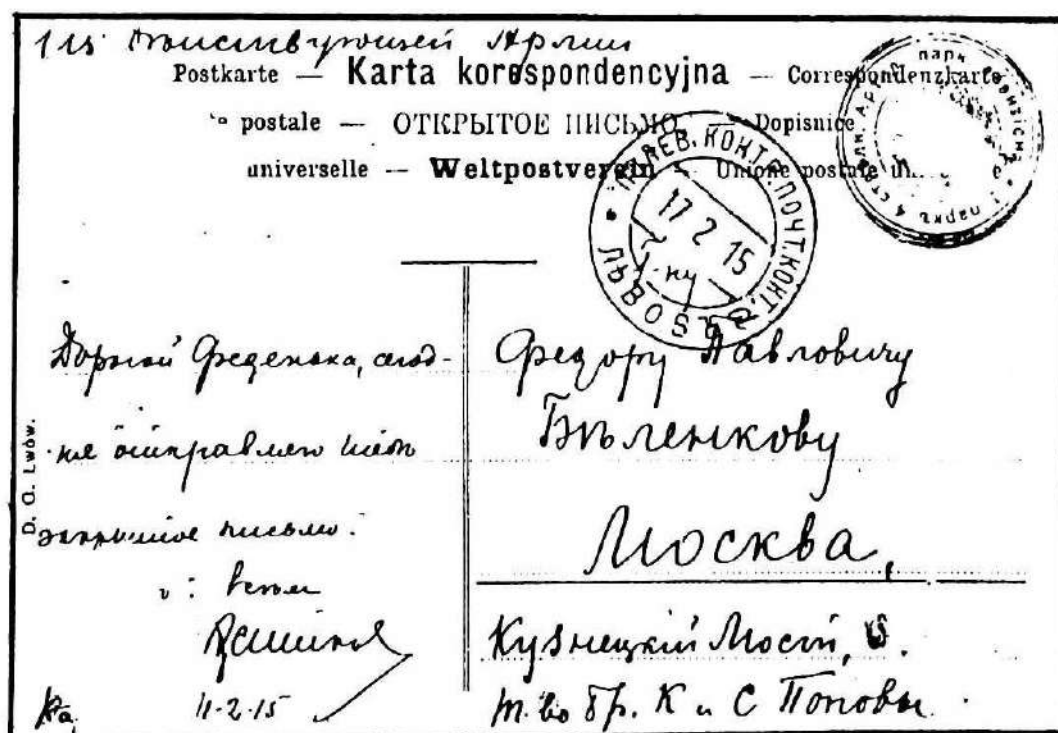 Дѣйствующей Арміи
Postkarte — Karta korespondencyjna — Correspondenzkarte
postale — ОТКРЫТОЕ ПИСЬМО — Dopisnice
universelle — Weltpostverein — Unione postale
ПОЧТ. КОНТ.
17 2 15
ЛЬВОВЪ
паркъ
Дорогой Феденька, сегод-
не отправлено
закрытое письмо.
11-2-15
D. G. Lwów.
Федору Павловичу
Бѣленкову
Москва,
Кузнецкій Мостъ,
т. во бр. К и С Поповы.